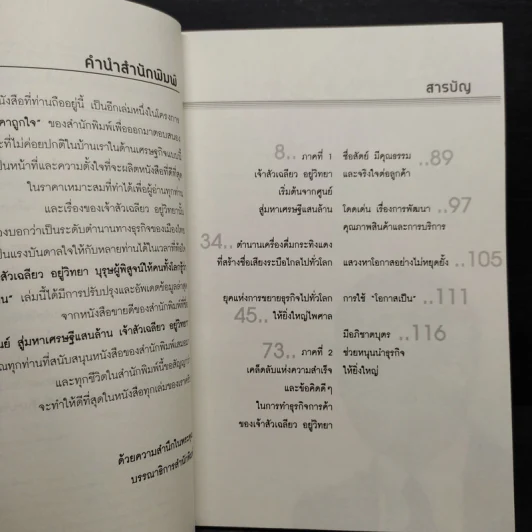 คำนำสำนักพิมพ์
นังสือที่ท่านถืออยู่นี้ เป็นอีกเล่มหนึ่งในโครงการ
าคาถูกใจ" ของสำนักพิมพ์เพื่อออกมาตอบสนอง
ะที่ไม่ค่อยปกติในบ้านเราในด้านเศรษฐกิจแบบนี้
เป็นหน้าที่และความตั้งใจที่จะผลิตหนังสือที่ดีที่สุด
ในราคาเหมาะสมที่ทำได้เพื่อผู้อ่านทุกท่าน
และเรื่องของเจ้าสัวเฉลียว อยู่วิทยานั้น
องบอกว่าเป็นระดับตำนานทางธุรกิจของเมืองไทย
ป็นแรงบันดาลใจให้กับหลายท่านได้ในเวลาที่
สัวเฉลียว อยู่วิทยา บุรุษผู้พิสูจน์ให้คนทั้งโลกรู้
น" เล่มนี้ได้มีการปรับปรุงและอัพเดตข้อมูลล่าสุด
จากหนังสือขายดีของสำนักพิมพ์ที่
นย์ สู่มหาเศรษฐีแสนล้าน เจ้าสัวเฉลียว อยู่วิทยา
ณทุกท่านที่สนับสนุนหนังสือของสำนักพิมพ์เสมอ
และทุกชีวิตในสำนักพิมพ์นี้ขอสัญญา
จะทำให้ดีที่สุดในหนังสือทุกเล่มของเรา
ด้วยความสำนึกใน
บรรณาธิการสำนักพิมพ์
สารบัญ
8.. ภาคที่ 1
เจ้าสัวเฉลียว อยู่วิทยา
เริ่มต้นจากศูนย์
สู่มหาเศรษฐีแสนล้าน
34.. ตำนานเครื่องดื่มกระทิงแดง
ที่สร้างชื่อเสียงระบือไกลไปทั่วโลก
ยุคแห่งการขยายธุรกิจไปทั่วโลก
45.. ให้ยิ่งใหญ่ไพศาล
73.. ภาคที่ 2
เคล็ดลับแห่งความสำเร็จ
และข้อคิดดีๆ
ในการทำธุรกิจการค้า
ของเจ้าสัวเฉลียว อยู่วิทยา
ชื่อสัตย์ มีคุณธรรม ..89
และจริงใจต่อลูกค้า
โดดเด่น เรื่องการพัฒนา ..97
คุณภาพสินค้าและการบริการ
แสวงหาโอกาสอย่างไม่หยุดยั้ง ..105
การใช้ "โอกาสเป็น" ..111
มีอภิชาตบุตร ..116
ช่วยหนุนนำธุรกิจ
ให้ยิ่งใหญ่